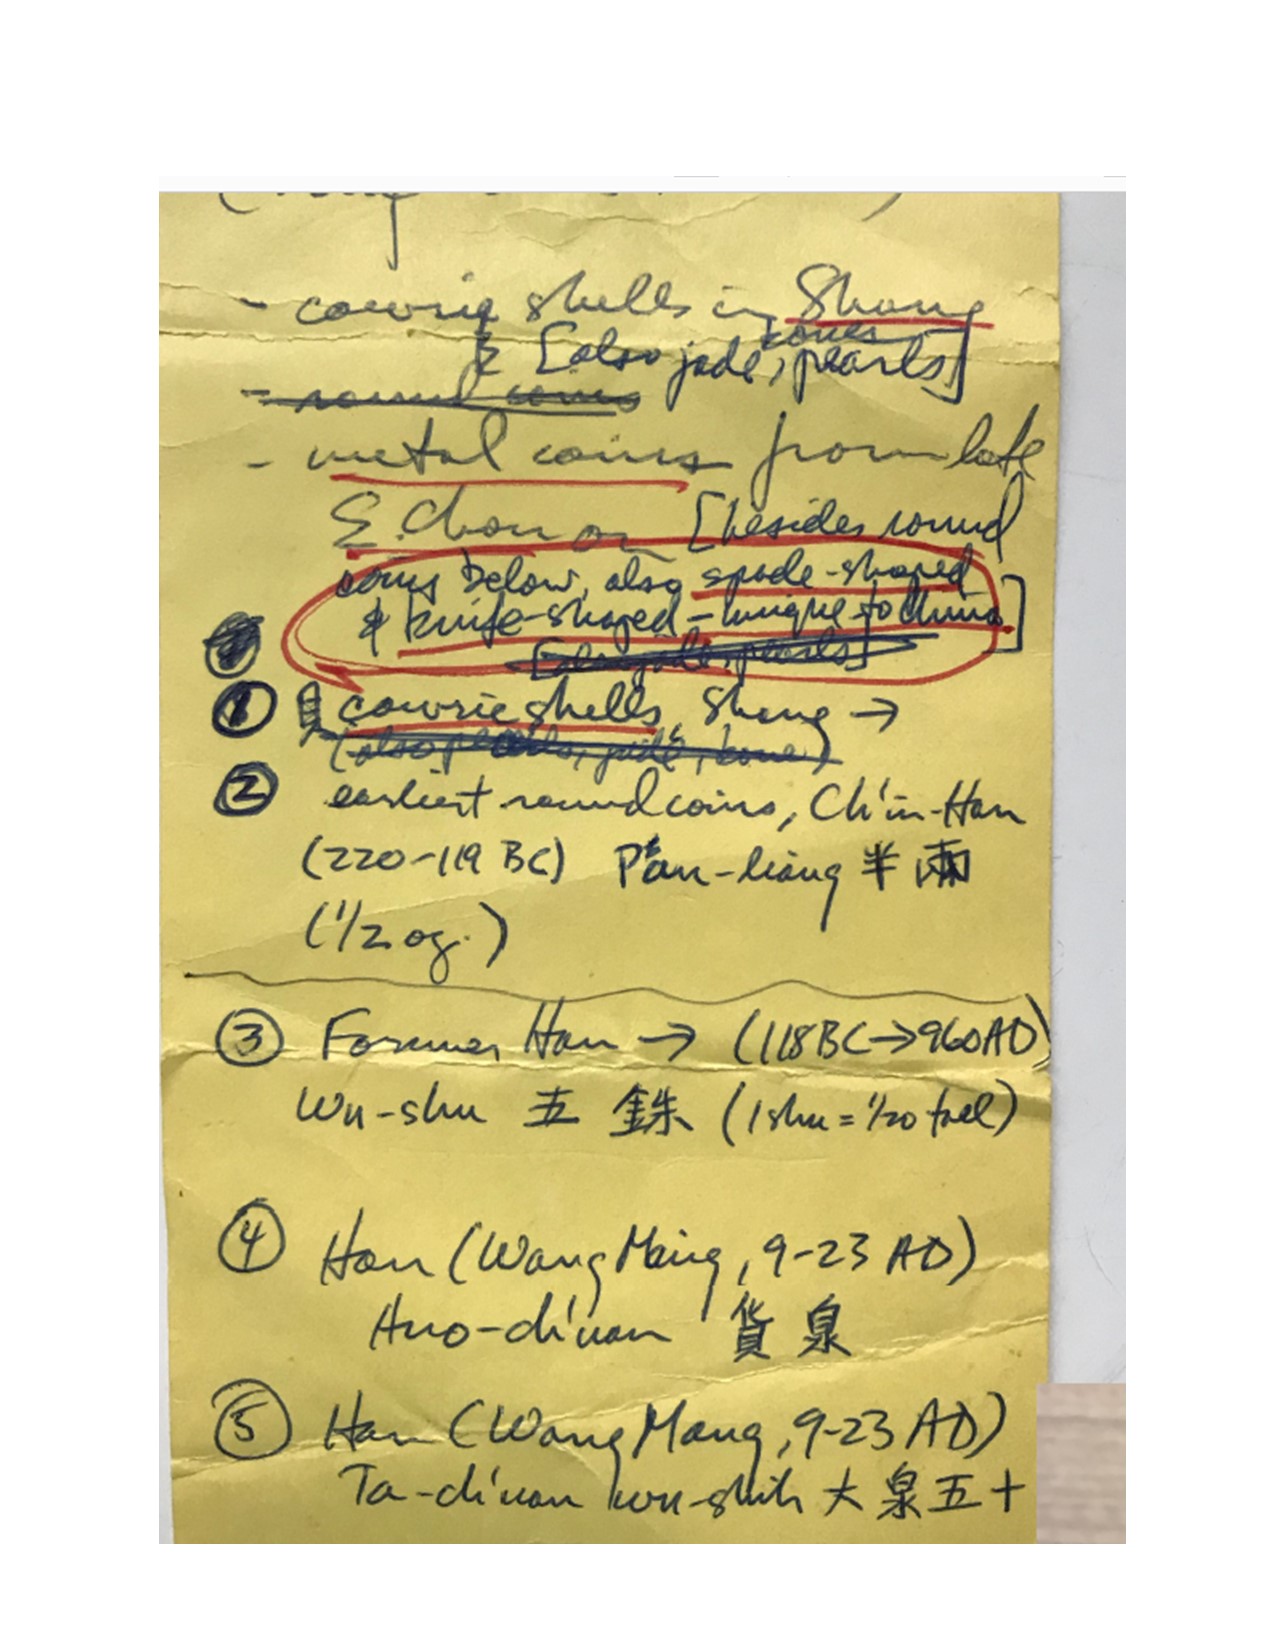 - cowrie shells in Shang
bones
& [also jade, pearls]
- round coins
- metal coins from late
E. Chou on [besides round
coins below, also spade-shaped
& knife-shaped – unique to China]
[also jade, pearls]
① 貝 cowrie shells, Shang →
(also pearls, jade, bone)
② earliest round coins, Ch'in-Han
(220-119 BC) Pan-liang 半 兩
(1/2 oz.)
③ Former Han → (118BC→960AD)
Wu-shu 五 銖 (1 shu = 1/20 tael)
④ Han (Wang Mang, 9-23 AD)
Huo-ch'uan 貨 泉
⑤ Han (Wang Mang, 9-23 AD)
Ta-ch'uan wu-shih 大 泉 五 十